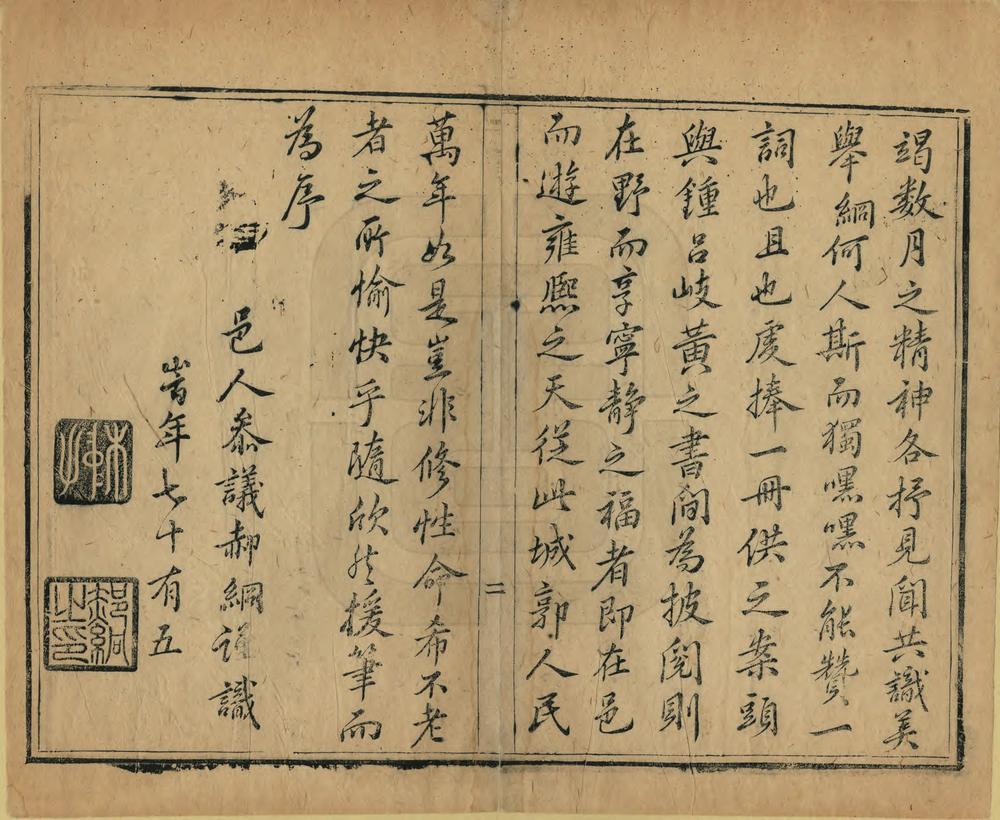 竭数月之精神各抒見聞共識美
舉綱何人斯而獨嘿嘿不能贊一
詞也且也虔捧一冊供之案頭
與鍾呂岐黃之書間為披閱則
在野而享寧靜之福者即在邑
而遊雍熙之天從此城郭人民
二
萬年如是豈非修性命希不老
者之所愉快乎隨欣然援筆而
為序
邑人叅議郝綱謹識
旹年七十有五
郝綱之印